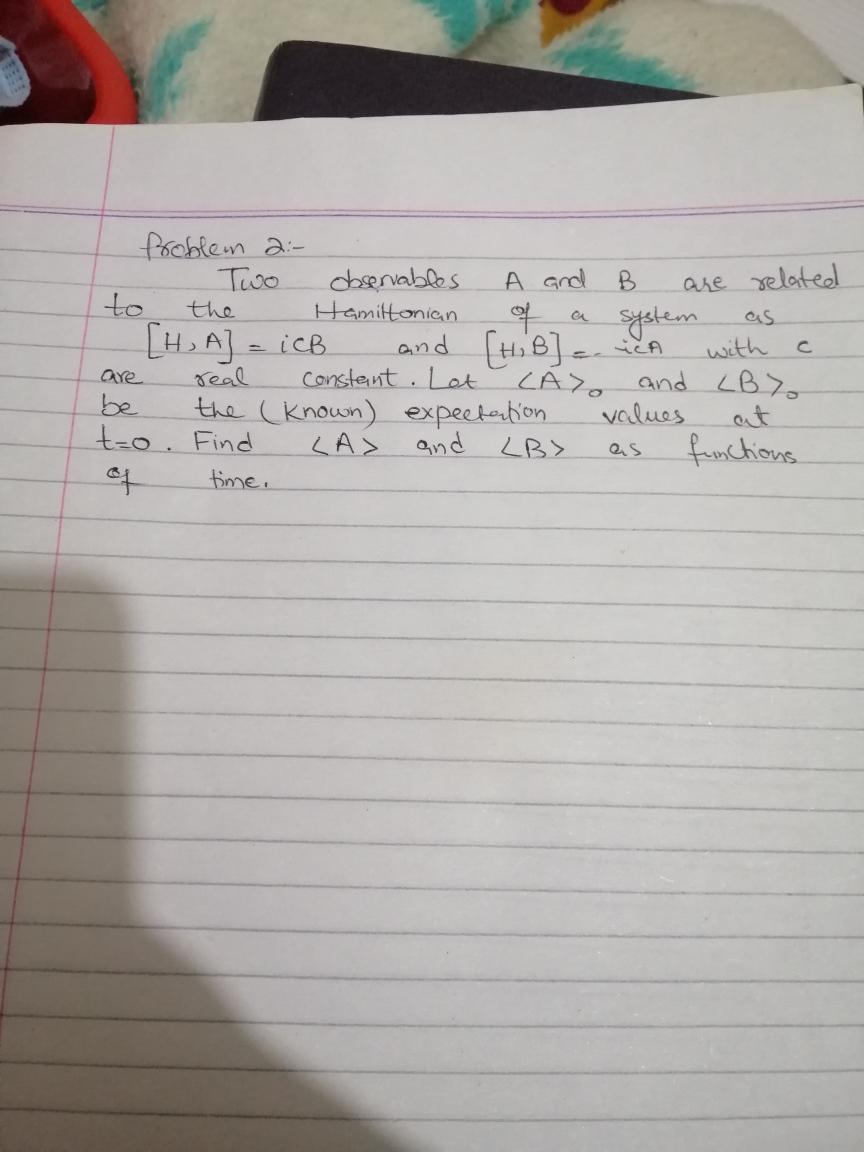 Problem 2:-
Two observables A and B are related
to the Hamiltonian of a system as
[H, A] = icB and [H, B] = - icA with c
are real constant. Let <A>₀ and <B>₀
be the (known) expectation values at
t=0. Find <A> and <B> as functions
of time.